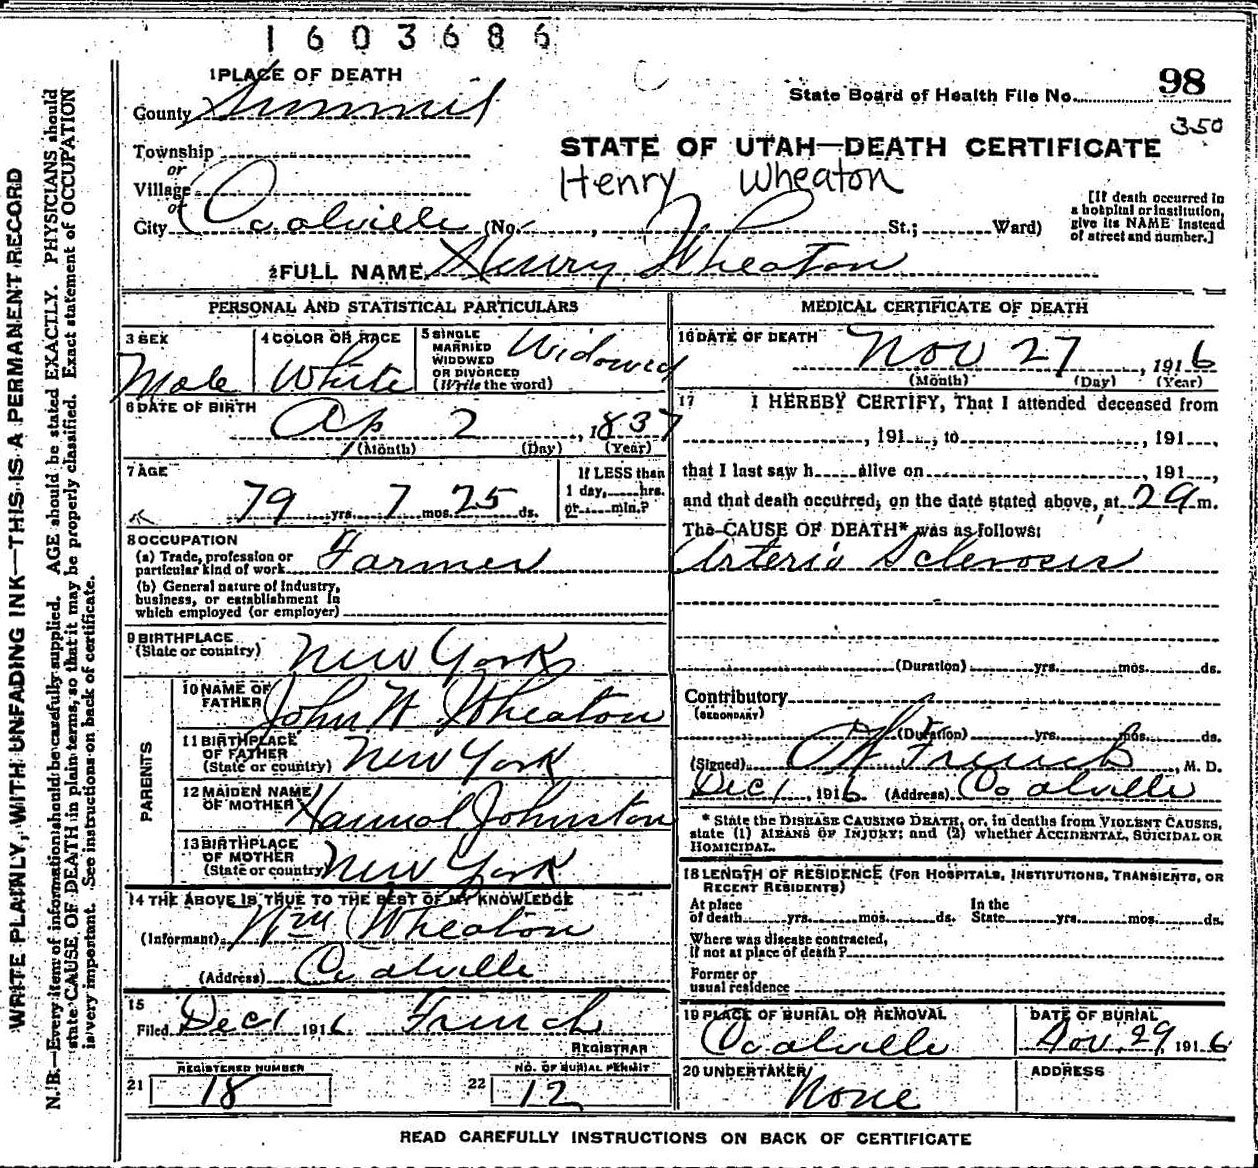 1603686
1 PLACE OF DEATH
98
State Board of Health File No.
350
County Summit
Township
or
Village
or
City Coalville (No. , St.; Ward)
STATE OF UTAH—DEATH CERTIFICATE
Henry Wheaton
[If death occurred in
a hospital or institution,
give its NAME instead
of street and number.]
2 FULL NAME Henry Wheaton
PERSONAL AND STATISTICAL PARTICULARS
3 SEX
Male
4 COLOR OR RACE
White
5 SINGLE
MARRIED
WIDOWED
OR DIVORCED
(Write the word)
Widowed
6 DATE OF BIRTH
Ap 2, 1837
(Month) (Day) (Year)
7 AGE
79 yrs. 7 mos. 25 ds.
If LESS than
1 day, hrs.
or min.?
8 OCCUPATION
(a) Trade, profession or
particular kind of work Farmer
(b) General nature of industry,
business, or establishment in
which employed (or employer)
9 BIRTHPLACE
(State or country) New York
PARENTS
10 NAME OF
FATHER John W Wheaton
11 BIRTHPLACE
OF FATHER
(State or country) New York
12 MAIDEN NAME
OF MOTHER Hannal Johnston
13 BIRTHPLACE
OF MOTHER
(State or country) New York
14 THE ABOVE IS TRUE TO THE BEST OF MY KNOWLEDGE
(Informant) Wm Wheaton
(Address) Coalville
15
Filed Dec 1 1916 French
REGISTRAR
REGISTERED NUMBER
21 18
NO. OF BURIAL PERMIT
22 12
MEDICAL CERTIFICATE OF DEATH
16 DATE OF DEATH
Nov 27, 1916
(Month) (Day) (Year)
17 I HEREBY CERTIFY, That I attended deceased from
, 191 , to , 191 ,
that I last saw h alive on , 191 ,
and that death occurred, on the date stated above, at m.
The CAUSE OF DEATH* was as follows:
Arterio Sclerosis
(Duration) yrs. mos. ds.
Contributory
(SECONDARY)
(Duration) yrs. mos. ds.
(Signed) French, M. D.
Dec 1, 1916 (Address) Coalville
* State the DISEASE CAUSING DEATH, or, in deaths from VIOLENT CAUSES,
state (1) MEANS OF INJURY; and (2) whether ACCIDENTAL, SUICIDAL OR
HOMICIDAL.
18 LENGTH OF RESIDENCE (FOR HOSPITALS, INSTITUTIONS, TRANSIENTS, OR
RECENT RESIDENTS)
At place
of death yrs. mos. ds.
In the
State yrs. mos. ds.
Where was disease contracted,
if not at place of death?
Former or
usual residence
19 PLACE OF BURIAL OR REMOVAL
Coalville
DATE OF BURIAL
Nov. 29, 1916
20 UNDERTAKER
None
ADDRESS
READ CAREFULLY INSTRUCTIONS ON BACK OF CERTIFICATE
WRITE PLAINLY, WITH UNFADING INK—THIS IS A PERMANENT RECORD
N. B.—Every item of information should be carefully supplied. AGE should be stated EXACTLY. PHYSICIANS should
state CAUSE OF DEATH in plain terms, so that it may be properly classified. Exact statement of OCCUPATION
is very important. See instructions on back of certificate.